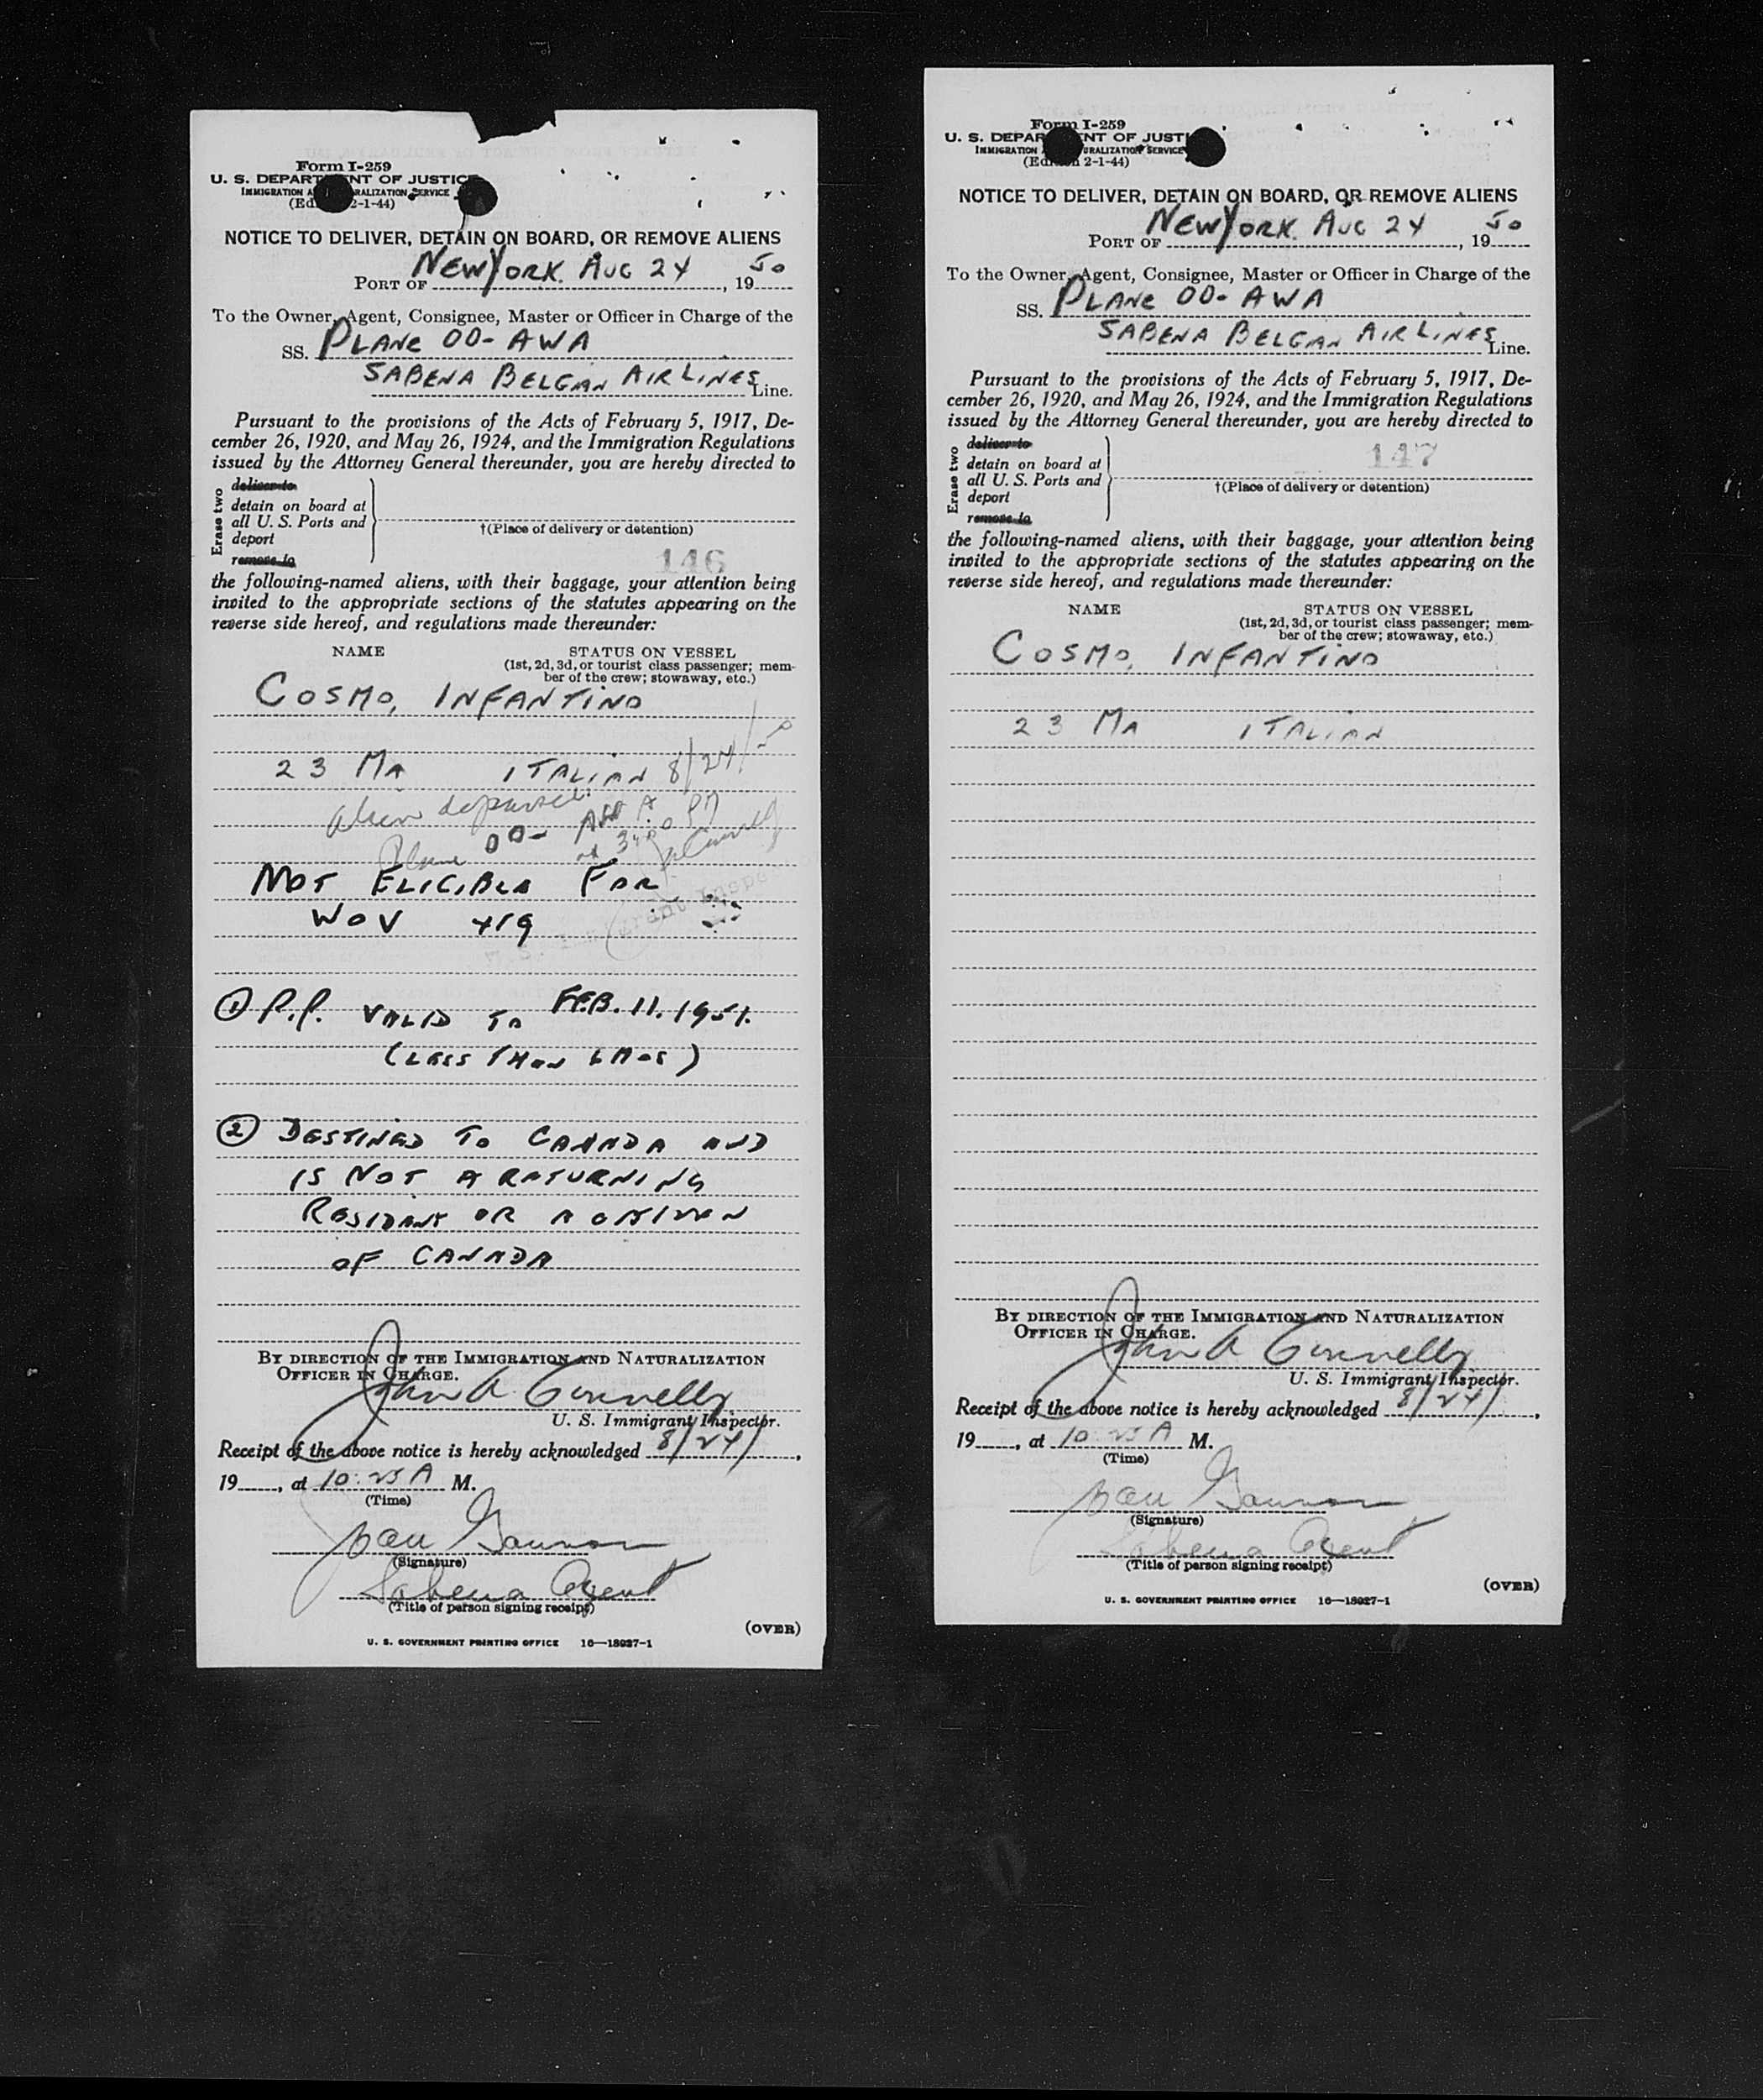 Form I-259
U. S. DEPARTMENT OF JUSTICE
IMMIGRATION NATURALIZATION SERVICE
2-1-44)
NOTICE TO DELIVER, DETAIN ON BOARD, OR REMOVE ALIENS
PORT OF NEW YORK. AUG 24, 1950
To the Owner, Agent, Consignee, Master or Officer in Charge of the
SS. PLANE OO-AWA
SABENA BELGIAN AIR LINES Line.
Pursuant to the provisions of the Acts of February 5, 1917, De-
cember 26, 1920, and May 26, 1924, and the Immigration Regulations
issued by the Attorney General thereunder, you are hereby directed to
Erase two
deliver to
detain on board at
all U. S. Ports and
deport
remove to
†(Place of delivery or detention)
146
the following-named aliens, with their baggage, your attention being
invited to the appropriate sections of the statutes appearing on the
reverse side hereof, and regulations made thereunder:
NAME STATUS ON VESSEL
(1st, 2d, 3d, or tourist class passenger; mem-
ber of the crew; stowaway, etc.)
COSMO, INFANTINO
23 MA ITALIAN 8/24/50
Alien departed
Plane OO-
NOT ELIGIBLE FOR
WOV 419
① P.P. VALID TO FEB. 11. 1951.
(LESS THAN 6 MOS)
② DESTINED TO CANADA AND
IS NOT A RETURNING
RESIDENT OR A CITIZEN
OF CANADA
BY DIRECTION OF THE IMMIGRATION AND NATURALIZATION
OFFICER IN CHARGE.
John A. Connelly
U. S. Immigrant Inspector.
Receipt of the above notice is hereby acknowledged 8/24/,
19, at 10:25 A M.
(Time)
Gannon
(Signature)
Sabena Agent
(Title of person signing receipt)
(OVER)
U. S. GOVERNMENT PRINTING OFFICE 16—18027-1
Form I-259
U. S. DEPARTMENT OF JUSTICE
IMMIGRATION NATURALIZATION SERVICE
2-1-44)
NOTICE TO DELIVER, DETAIN ON BOARD, OR REMOVE ALIENS
PORT OF NEW YORK. AUG 24, 1950
To the Owner, Agent, Consignee, Master or Officer in Charge of the
SS. PLANE OO-AWA
SABENA BELGIAN AIR LINES Line.
Pursuant to the provisions of the Acts of February 5, 1917, De-
cember 26, 1920, and May 26, 1924, and the Immigration Regulations
issued by the Attorney General thereunder, you are hereby directed to
Erase two
deliver to
detain on board at
all U. S. Ports and
deport
remove to
147
†(Place of delivery or detention)
the following-named aliens, with their baggage, your attention being
invited to the appropriate sections of the statutes appearing on the
reverse side hereof, and regulations made thereunder:
NAME STATUS ON VESSEL
(1st, 2d, 3d, or tourist class passenger; mem-
ber of the crew; stowaway, etc.)
COSMO, INFANTINO
23 MA ITALIAN
BY DIRECTION OF THE IMMIGRATION AND NATURALIZATION
OFFICER IN CHARGE.
John A Connelly
U. S. Immigrant Inspector.
Receipt of the above notice is hereby acknowledged 8/24/,
19, at 10:25 A M.
(Time)
Gannon
(Signature)
Sabena Agent
(Title of person signing receipt)
(OVER)
U. S. GOVERNMENT PRINTING OFFICE 16—18027-1